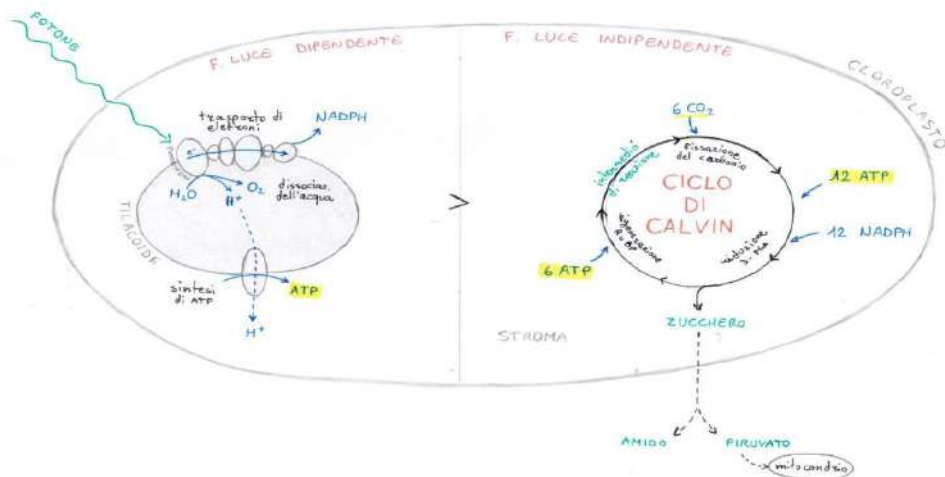 FOTONE
F. LUCE DIPENDENTE
F. LUCE INDIPENDENTE
CLOROPLASTO
trasporto di
eletroni
NADPH
e-
H₂O
O₂
H⁺
dissociaz.
dell'acqua
TILACOIDE
sintesi
di ATP
ATP
H⁺
>
6 CO₂
fissazione
del carbonio
intermedio
di reazione
CICLO
DI
CALVIN
12 ATP
12 NADPH
riduzione
3-PGA
rigenerazione
RuBP
6 ATP
ZUCCHERO
STROMA
AMIDO
PIRUVATO
mitocondrio